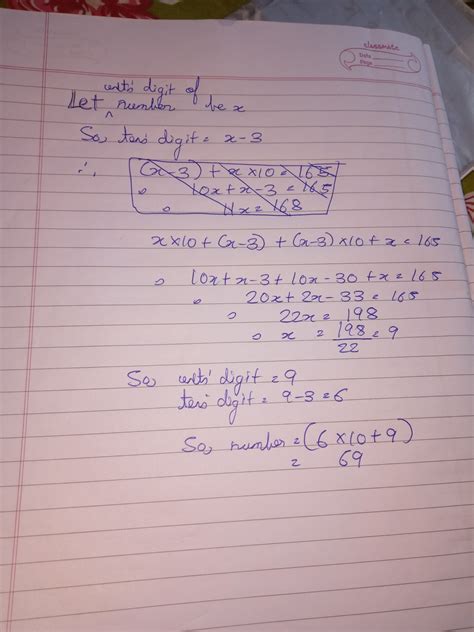 classmate
Date
Page
units digit of
Let ^ number be x
So, tens digit = x-3
∴ (x-3) + x×10 = 165
10x+x-3 = 165
11x = 168
x×10+(x-3) + (x-3)×10+x = 165
10x+x-3+10x-30+x = 165
20x+2x-33 = 165
22x = 198
x = 198/22 = 9
So, units digit = 9
tens digit = 9-3=6
So, number = (6×10+9)
= 69